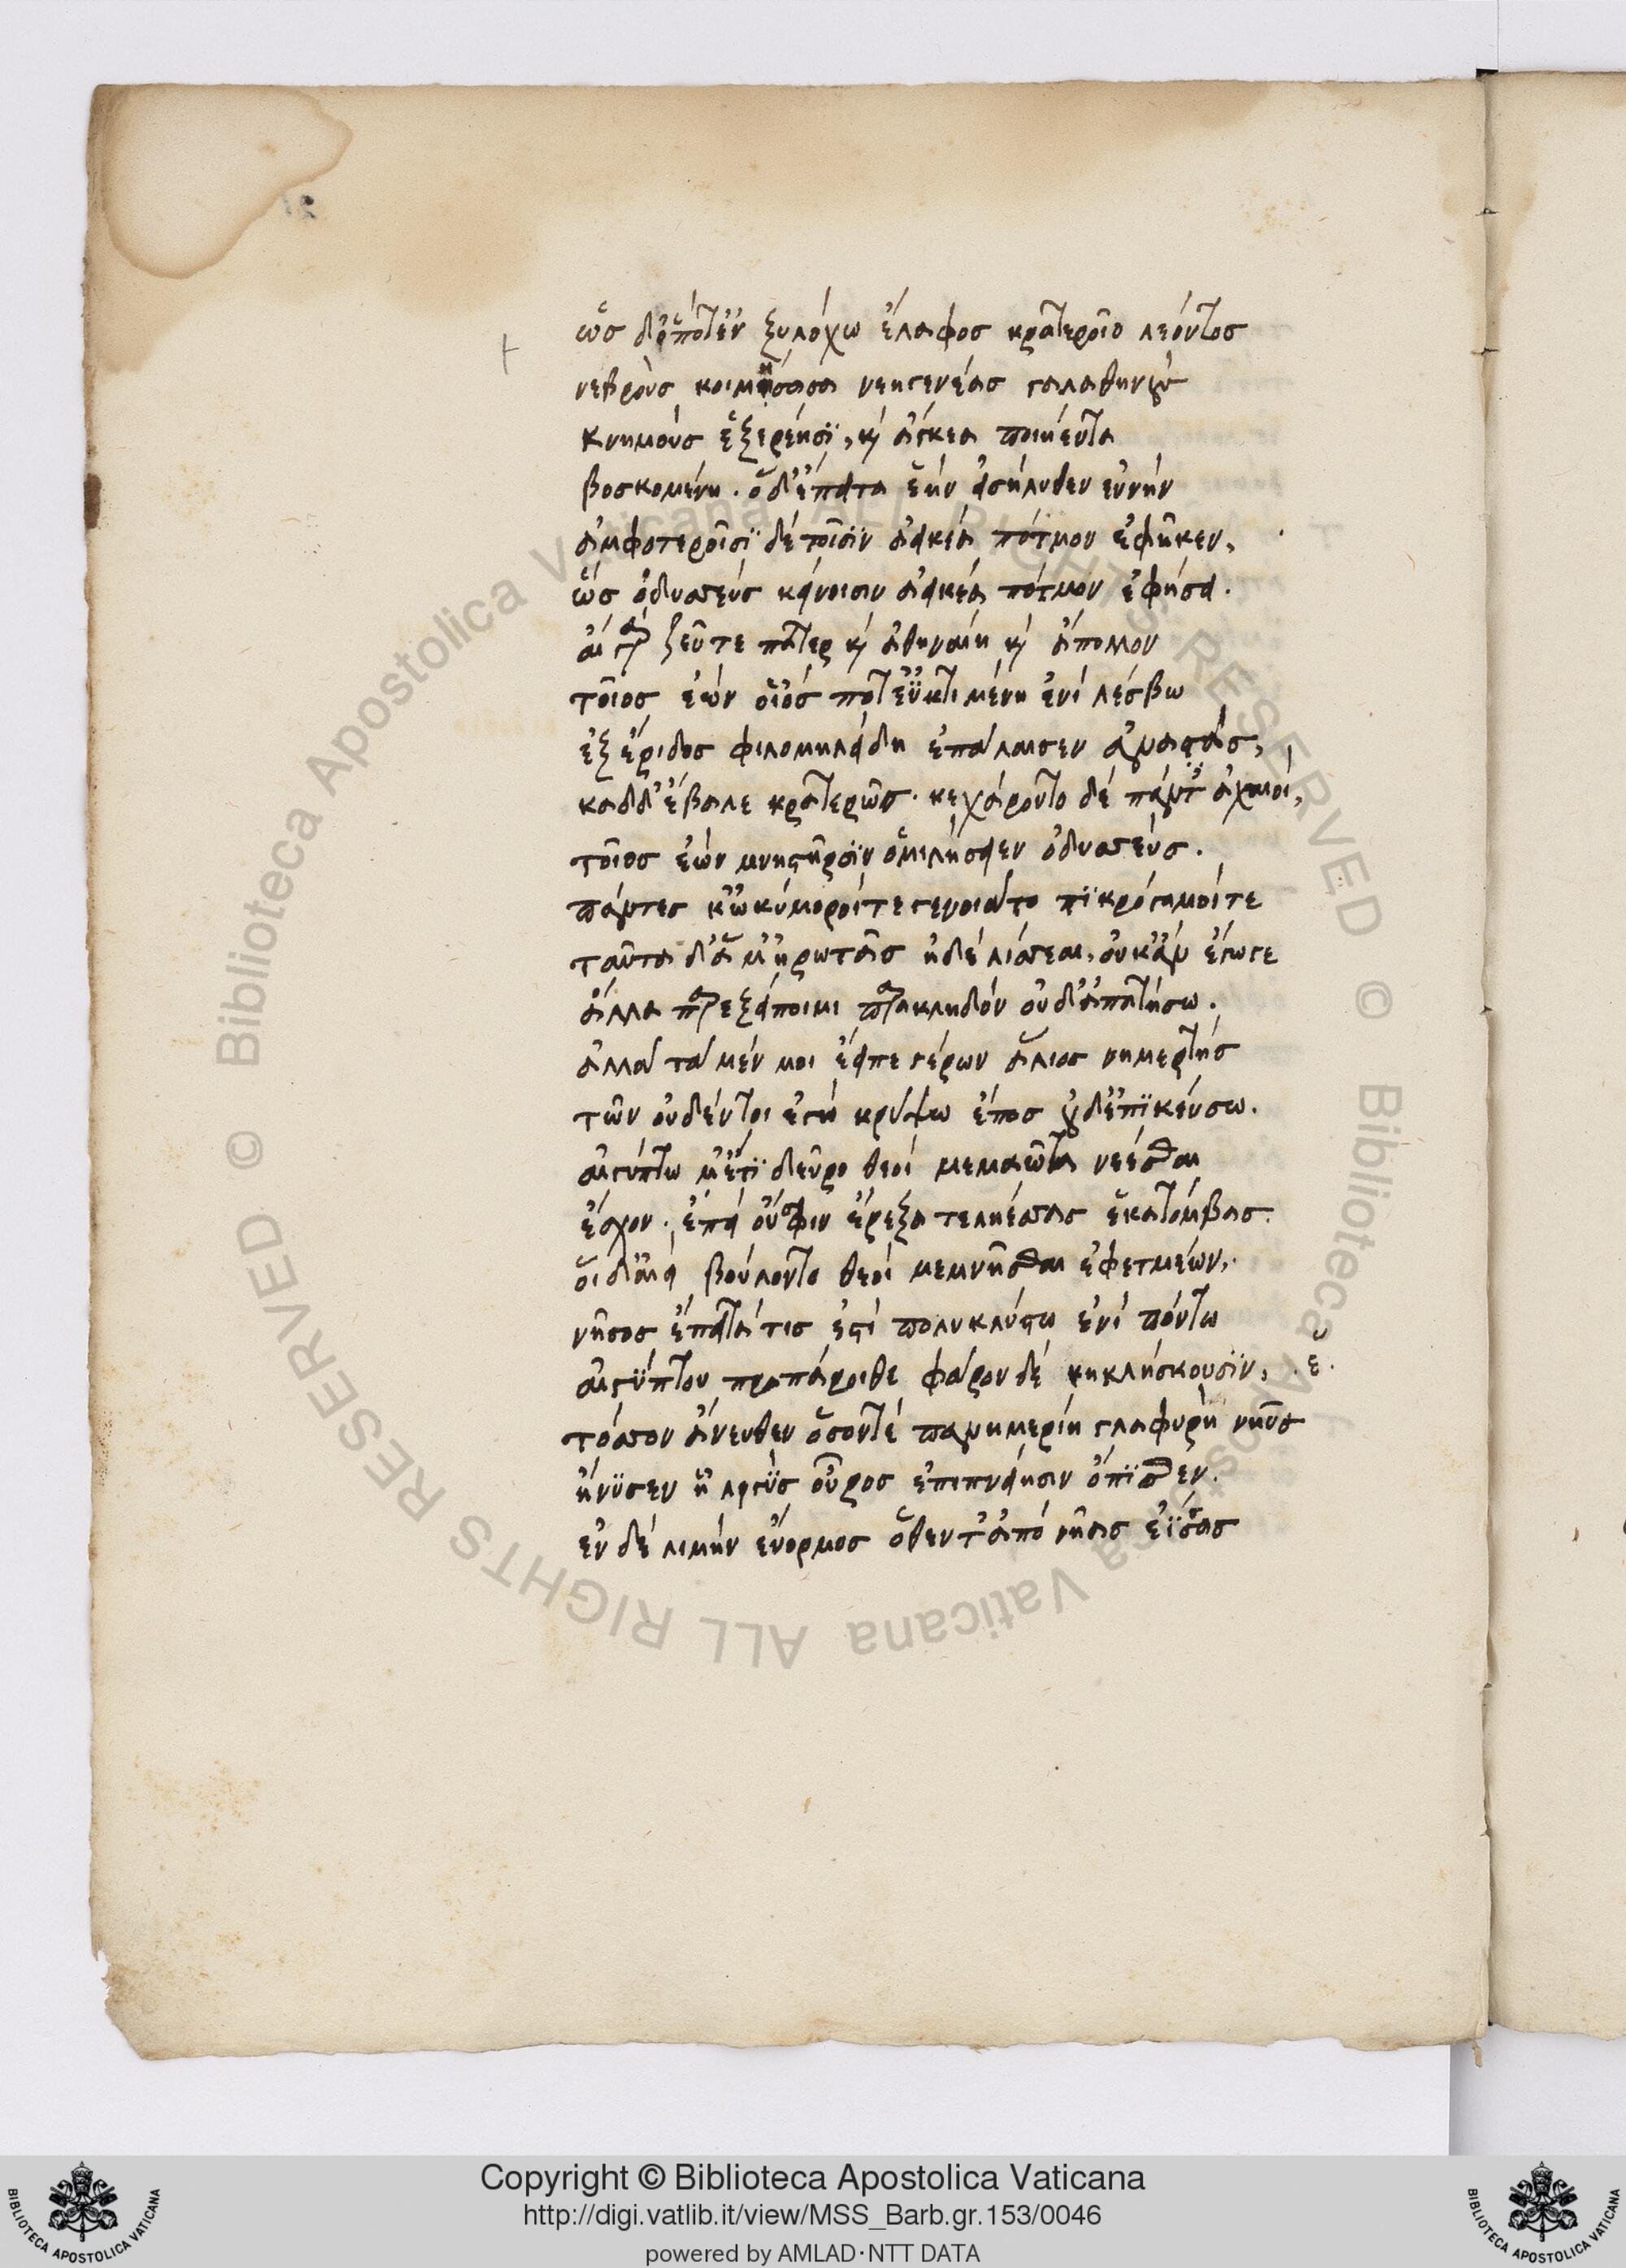 ὣς δ' ὁπότ' ἐν ξυλόχω ἔλαφος κρατεροῖο λέοντος
νεβροὺς κοιμήσασα νεηγενέας γαλαθηνοὺς
κνημοὺς ἐξερέησϊ, καὶ ἄγκεα ποιήεντα
βοσκομένη. ὁ δ' ἔπειτα ἑὴν εἰσήλυθεν εὐνὴν
ἀμφοτέροισϊ δὲ τοῖσϊν ἀεικέα πότμον ἐφῆκεν,
ὣς ὀδυσσεὺς κείνοισιν ἀεικέα πότμον ἐφήσει.
αἲ γὰρ ζεῦ τε πάτερ καὶ ἀθηναίη καὶ ἄπολλον
τοῖος ἐὼν οἷός ποτ' ἐϋκτιμένη ἐνὶ λέσβω
ἐξ ἔριδος φιλομηλείδη ἐπάλαισεν ἀναστὰς,
καδδ' ἔβαλε κρατερῶς. κεχάροντο δὲ πάντες ἀχαιοὶ,
τοῖος ἐὼν μνηστῆρσϊν ὁμιλήσειεν ὀδυσσεύς.
πάντες κ' ὠκύμοροί τε γενοίατο πϊκρόγαμοί τε
ταῦτα δ' ἅ μ' εἰρωτᾶς ἠδὲ λίσσεαι, οὐκ ἂν ἔγωγε
ἄλλα παρεξείποιμι παρακληδὸν οὐδ' ἀπατήσω.
ἀλλὰ τὰ μέν μοι ἔειπε γέρων ἅλιος νημερτὴς
τῶν οὐδέν τοι ἐγὼ κρύψω ἔπος οὐδ' ἐπϊκεύσω.
αἰγύπτω μ' ἔτϊ δεῦρο θεοὶ μεμαῶτα νέεσθαι
ἔσχον. ἐπεὶ οὔ σφιν ἔρεξα τεληέσσας ἑκατόμβας.
οἱ δ' αἰεὶ βούλοντο θεοὶ μεμνῆσθαι ἐφετμέων.
νῆσος ἔπειτά τις ἐστὶ πολυκλύστω ἐνὶ πόντω
αἰγϋπτου προπάροιθε φάρον δὲ κικλήσκουσϊν,
τόσσον ἄνευθεν ὅσον τὲ πανημερίη γλαφυρὴ νηῦς
ἤνϋσεν ᾗ λιγὺς οὖρος ἐπιπνείησιν ὄπϊσθεν.
ἐν δὲ λιμὴν εὔορμος ὅθεν τ' ἀπὸ νῆας ἐΐσας
Copyright © Biblioteca Apostolica Vaticana
http://digi.vatlib.it/view/MSS_Barb.gr.153/0046
powered by AMLAD·NTT DATA